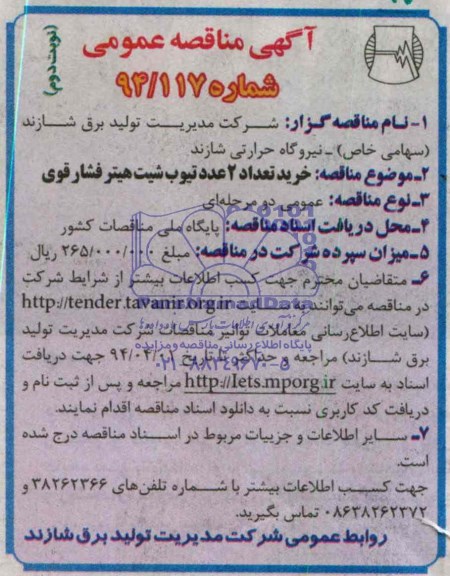 (نوبت دوم)
آگهی مناقصه عمومی
شماره ۹۴/۱۱۷
۱- نام مناقصه گزار: شرکت مدیریت تولید برق شازند
(سهامی خاص) - نیروگاه حرارتی شازند
۲- موضوع مناقصه: خرید تعداد ۲ عدد تیوب شیت هیتر فشار قوی
۳- نوع مناقصه: عمومی دو مرحله‌ای
۴- محل دریافت اسناد مناقصه: پایگاه ملی مناقصات کشور
۵- میزان سپرده شرکت در مناقصه: مبلغ ۲۶۵/۰۰۰/۰۰۰ ریال
۶- متقاضیان محترم جهت کسب اطلاعات بیشتر از شرایط شرکت
در مناقصه می‌توانند به سایت http://tender.tavanir.org.ir
(سایت اطلاع‌رسانی معاملات توانیر مناقصات شرکت مدیریت تولید
برق شازند) مراجعه و حداکثر تا تاریخ ۹۴/۰۴/ جهت دریافت
اسناد به سایت http://Iets.mporg.ir مراجعه و پس از ثبت نام و
دریافت کد کاربری نسبت به دانلود اسناد مناقصه اقدام نمایند.
۷- سایر اطلاعات و جزییات مربوط در اسناد مناقصه درج شده
است.
جهت کسب اطلاعات بیشتر با شماره تلفن‌های ۳۸۲۶۲۳۶۶ و
۰۸۶۳۸۲۶۲۳۷۲ تماس بگیرید.
روابط عمومی شرکت مدیریت تولید برق شازند
پایگاه اطلاع رسانی مناقصه و مزایده
۰۲۱-۸۸۳۴۹۶۷۰-۵